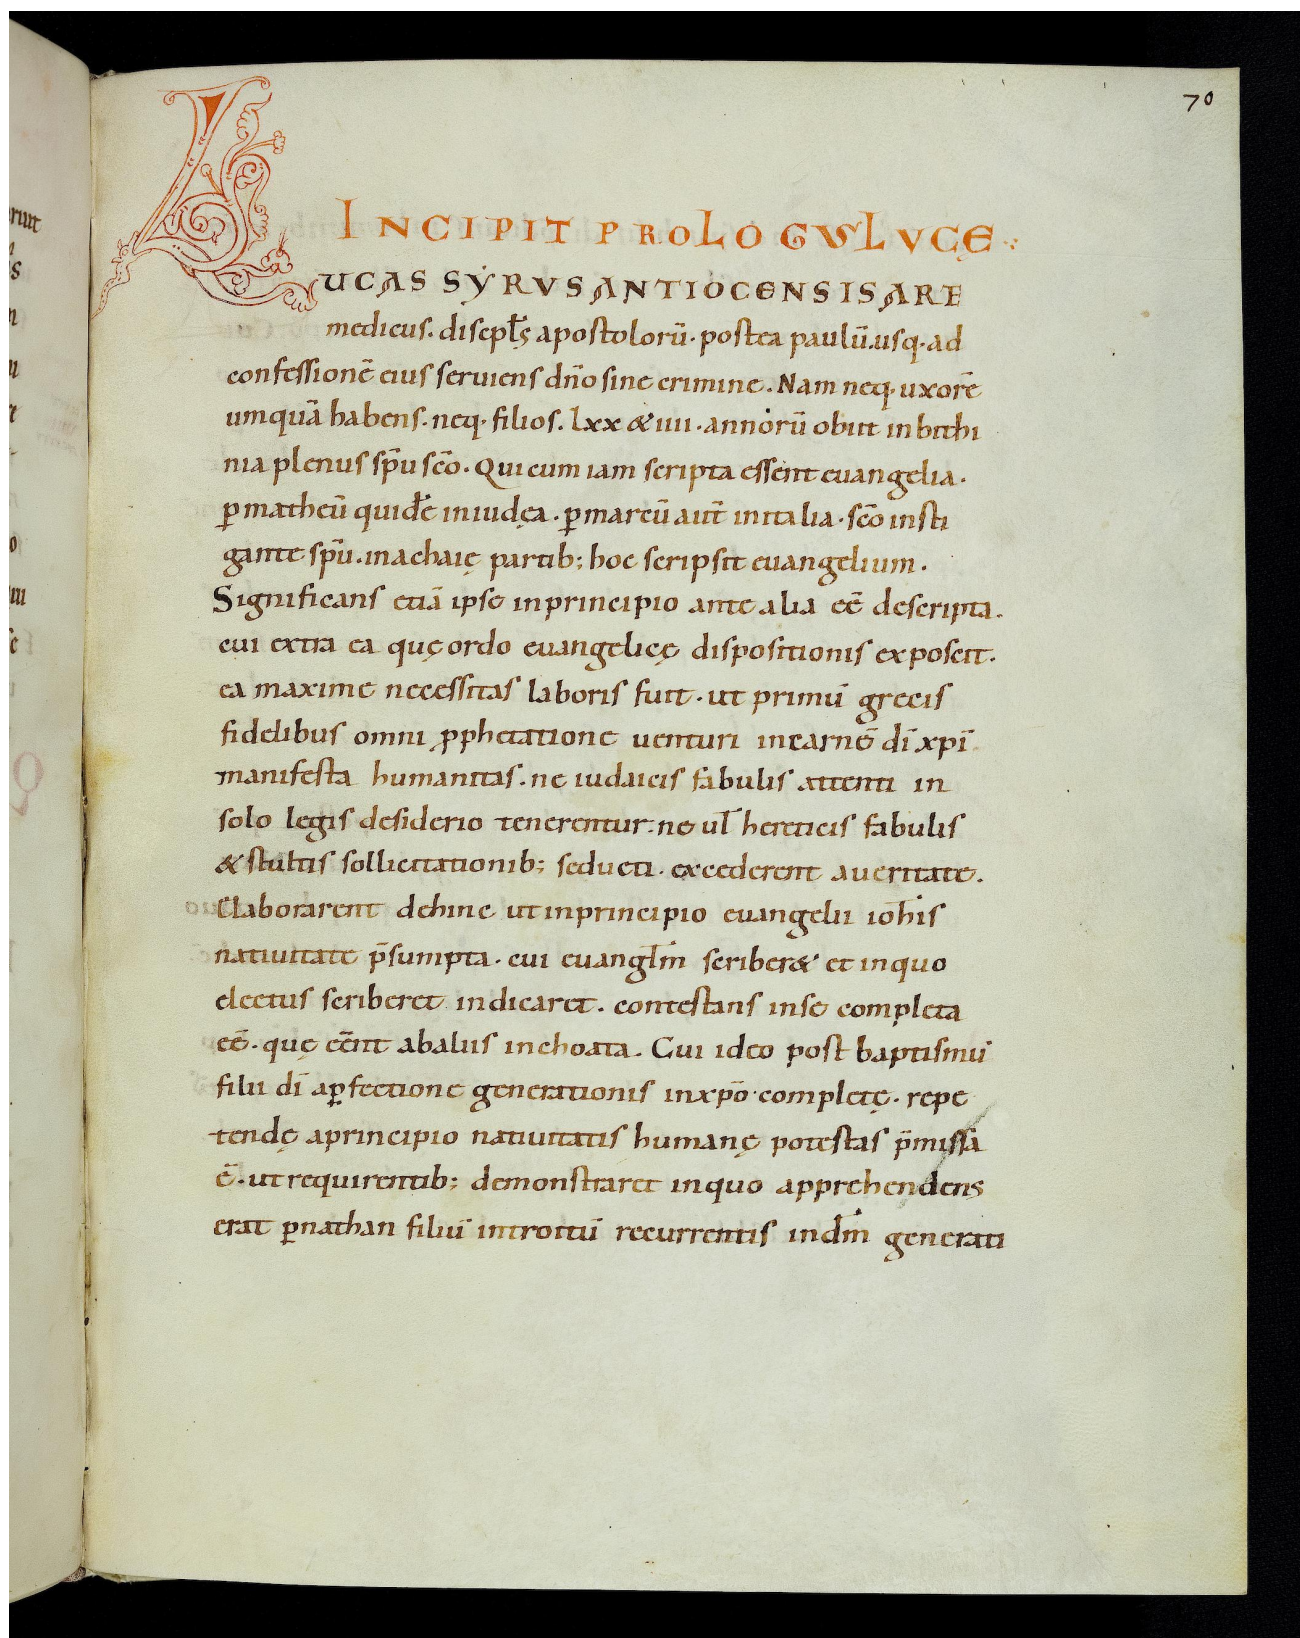 70
INCIPIT PROLOGUS LVCĘ
LUCAS SYRVS ANTIOCENSIS ARE
medicus. discpl̄s apostolorū. postea paulū. usq· ad
confessionē eius seruiens dn̄o sine crimine. Nam neq· uxorē
umquā habens. neq· filios. lxx & iiii. annorū obiit in bithi
nia plenus sp̄u sc̄o. Qui cum iam scripta essent euangelia.
ꝑ matheū quidē in iudęa. ꝑ marcū aut̄ in italia. sc̄o insti
gante sp̄u. in achaię partib; hoc scripsit euangelium.
Significans etiā ipse in principio ante alia eē descripta.
cui extra ea quę ordo euangelicę dispositionis exposcit.
ea maxime necessitas laboris fuit. ut primū grecis
fidelibus omni ꝓphetatione uenturi in carnē dī xp̄i
manifesta humanitas. ne iudaicis fabulis attenti in
solo legis desiderio tenerentur. ne ul̄ hereticis fabulis
& stultis sollicitationib; seducti. excederent a ueritate.
Elaborarent dehinc ut in principio euangelii ioh̄is
natiuitate p̄sumpta. cui euangl̄m scriber& et in quo
electus scriberet indicaret. contestans in se completa
eē. quę eēnt ab aliis inchoata. Cui ideo post baptismū
filii dī a ꝑfectione generationis in xp̄o completę. repe
tendę a principio natiuitatis humanę potestas p̄missa
ē. ut requirentib; demonstraret in quo apprehendens
erat ꝑ nathan filiū introitū recurrentis in dm̄ generati